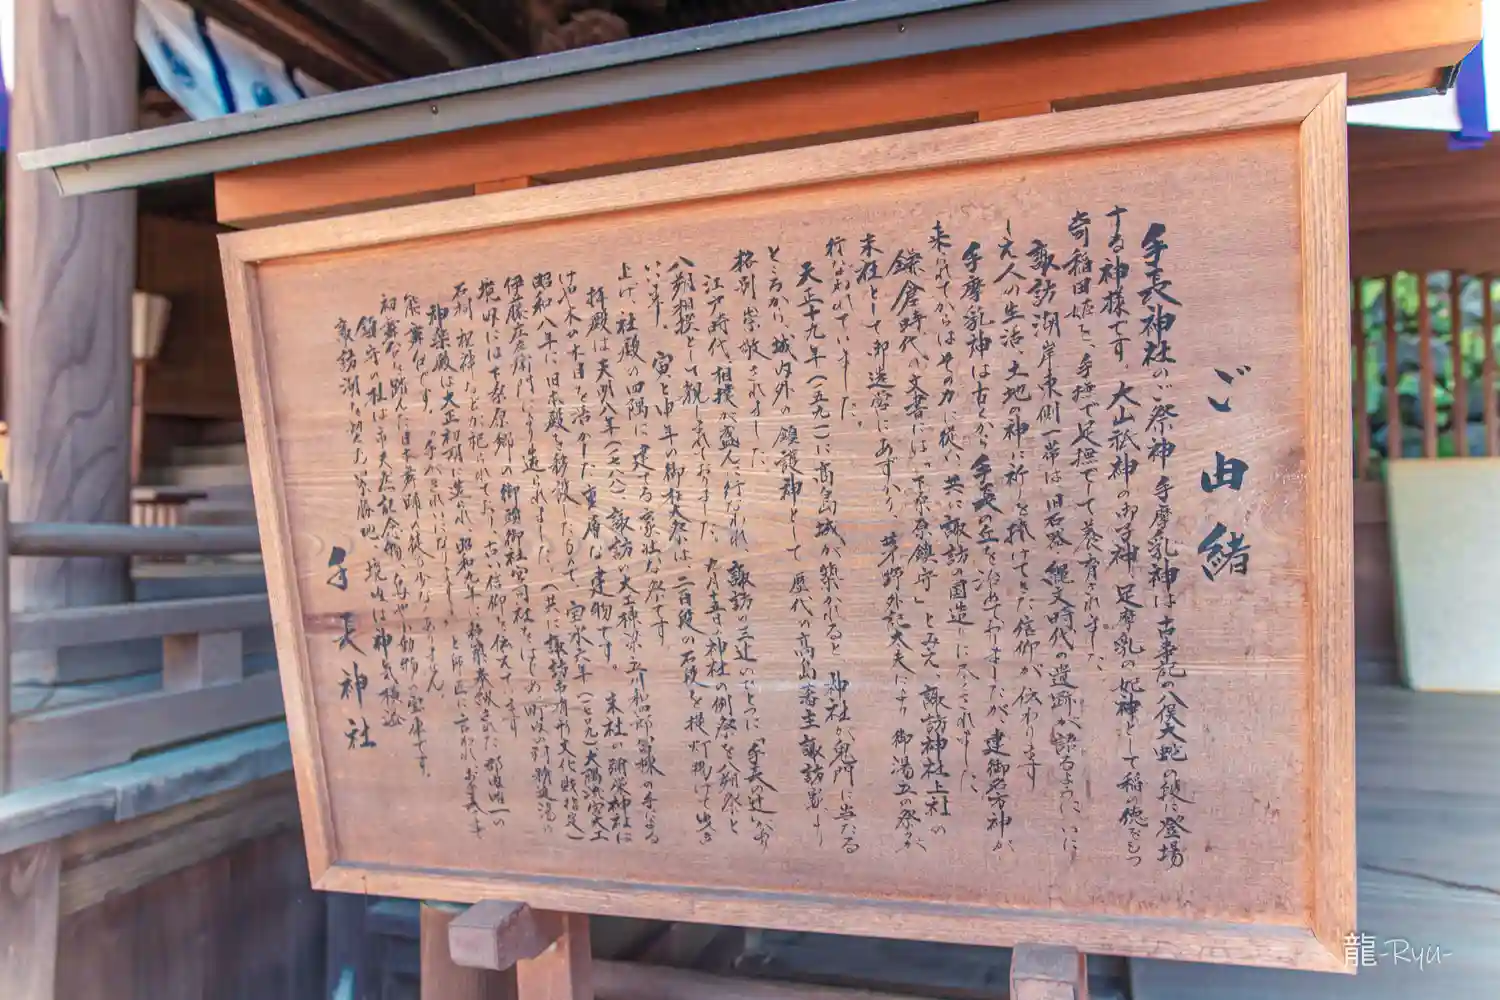 ご由緒
手長神社のご祭神 手摩乳神は古事記の八俣大蛇の段に登場
する神様です。大山祇神の御子神、足摩乳の妃神として稲の徳をもつ
奇稲田姫を、手撫で足撫でして養育されました。
諏訪湖岸東側一帯は旧石器、縄文時代の遺跡が語るように、いに
しえ人の生活、土地の神に祈りを捧げてきた信仰が伝わります
手摩乳神は古くから手長の丘を治めておりましたが、建御名方神が
来られてからはその力に従い、共に諏訪の国造りに尽くされました。
鎌倉時代の文書には「下桑原鎮守」とみえ、諏訪神社上社の
末社として御造営にあずかり、茅野外記大夫により御湯立の祭事が
行なわれていました。
天正十九年（一五九一）に高島城が築かれると、神社が鬼門に当たる
ところから、城内外の鎮護神として歴代の高島藩主諏訪家より
格別崇敬されました
江戸時代、相撲が盛んに行なわれ、諏訪の三辻のひとつに「手長の辻」があり
八朔相撲として親しまれておりました。九月十五日の神社の例祭を八朔祭と
いいます。寅と申年の御柱大祭は、二百段の石段を提灯掲げて曳き
上げ、社殿の四隅に建てる豪壮な祭です。
拝殿は天明八年（一七八八）諏訪の大工棟梁
け治め木の木目を活かした重厚な建物です。末社の
昭和八年に旧本殿を移設したもので、宝永六年（一七〇九）大隅流宮大工
伊藤庄左衛門により造られました。（共に諏訪市有形文化財指定）
境内には下桑原郷の御頭御社宮司社をはじめ
石祠、祝神などが祀られており、古い信仰を伝えています
神楽殿は大正初期に造られ、昭和九年に
熊舞台です。
初舞台を踏んだ日本舞踊の徒も少なくありません
鎮守の杜は市天然記念物、
諏訪湖を望む景勝地、境内は神気横溢
手長神社
龍-Ryu-